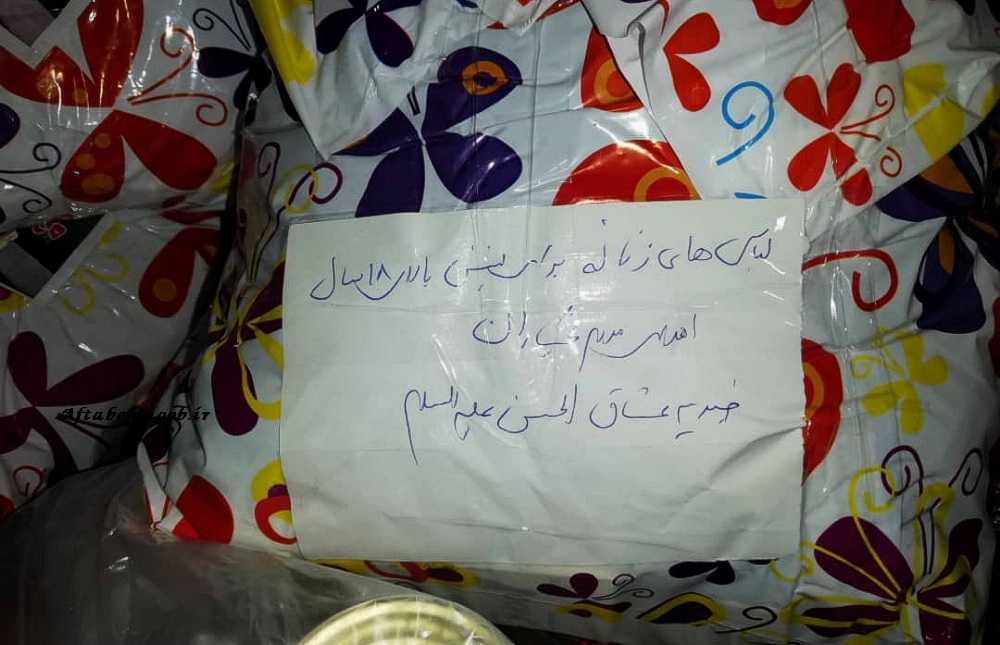 لباس های زنانه برای سنین بالای ۱۸ سال
اهدایی مردم
خیریه عشاق الحسن علیه السلام
Aftabejonoob.ir